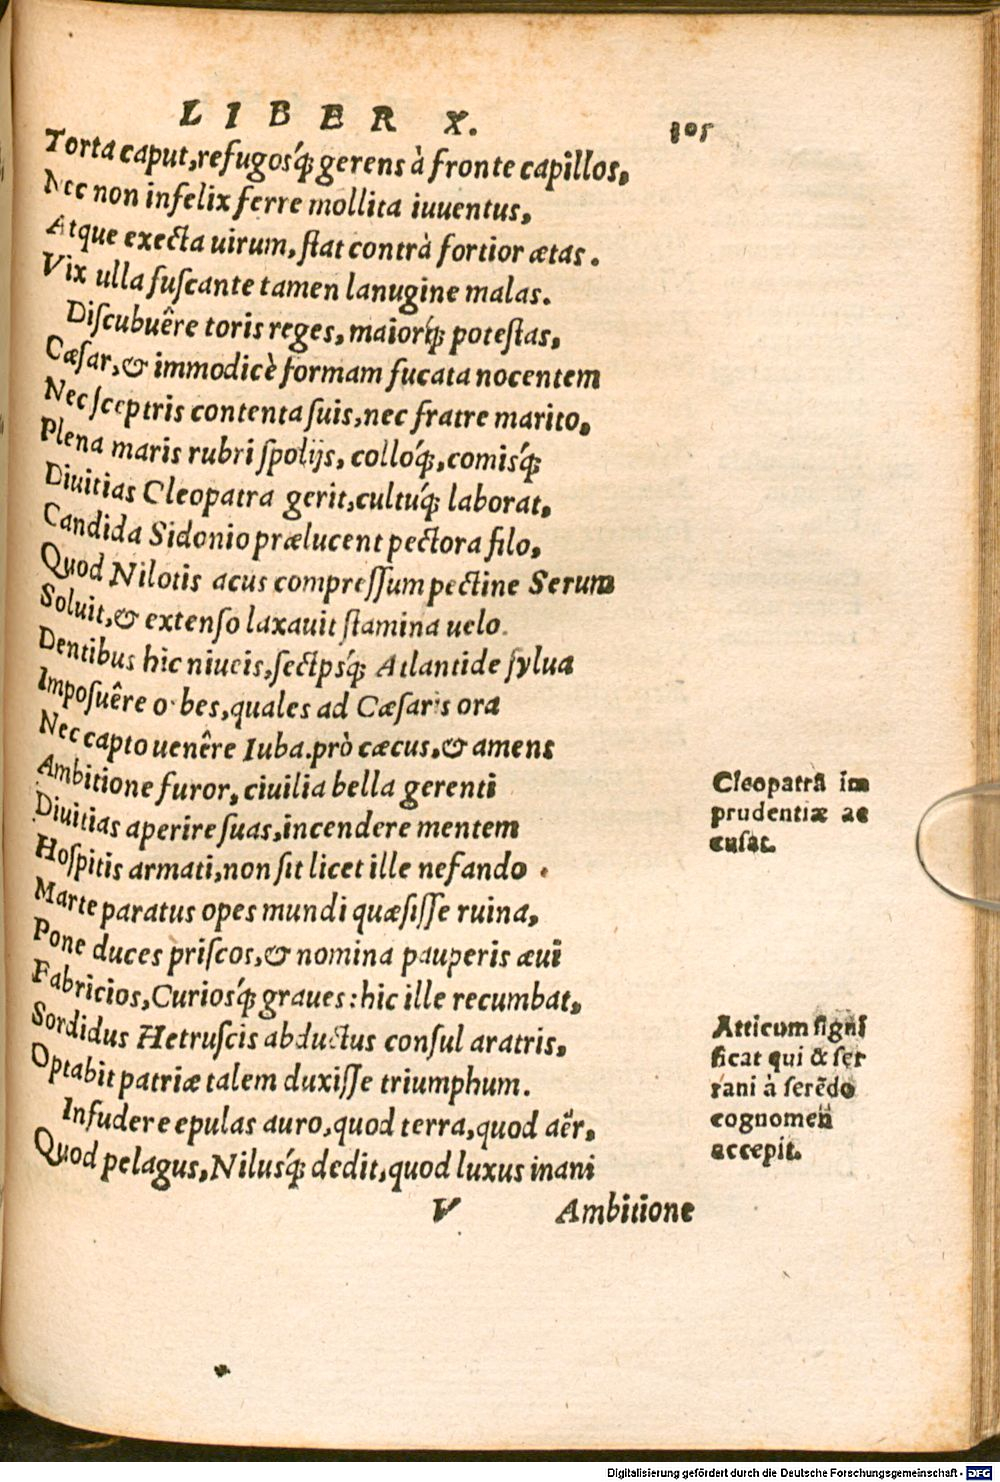 LIBER X. 305
Torta caput, refugosq́; gerens à fronte capillos,
Nec non infelix ferre mollita iuuentus,
Atque execta uirum, ſtat contrà fortior ætas.
Vix ulla fuſcante tamen lanugine malas.
Diſcubuêre toris reges, maiorq́; poteſtas,
Cæſar, & immodicè formam fucata nocentem
Nec ſceptris contenta ſuis, nec fratre marito,
Plena maris rubri ſpolijs, colloq́;, comisq́;
Diuitias Cleopatra gerit, cultuq́; laborat,
Candida Sidonio prælucent pectora filo,
Quod Nilotis acus compreſſum pectine Serum
Soluit, & extenſo laxauit ſtamina uelo.
Dentibus hic niueis, ſectpsq́; Atlantide ſylua
Impoſuêre o bes, quales ad Cæſaris ora
Nec capto uenêre Iuba. prò cæcus, & amens
Ambitione furor, ciuilia bella gerenti
Diuitias aperire ſuas, incendere mentem
Hoſpitis armati, non ſit licet ille nefando
Marte paratus opes mundi quæſiſſe ruina,
Pone duces priſcos, & nomina pauperis æui
Fabricios, Curiosq́; graues: hic ille recumbat,
Sordidus Hetruſcis abductus conſul aratris,
Optabit patriæ talem duxiſſe triumphum.
Infudere epulas auro, quod terra, quod aër,
Quod pelagus, Nilusq́; dedit, quod luxus inani
V Ambitione
Cleopatrā im
prudentiæ ac
cuſat.
Atticum ſigni
ficat qui & ſer
rani à ſerēdo
cognomen
accepit.
Digitalisierung gefördert durch die Deutsche Forschungsgemeinschaft - DFG